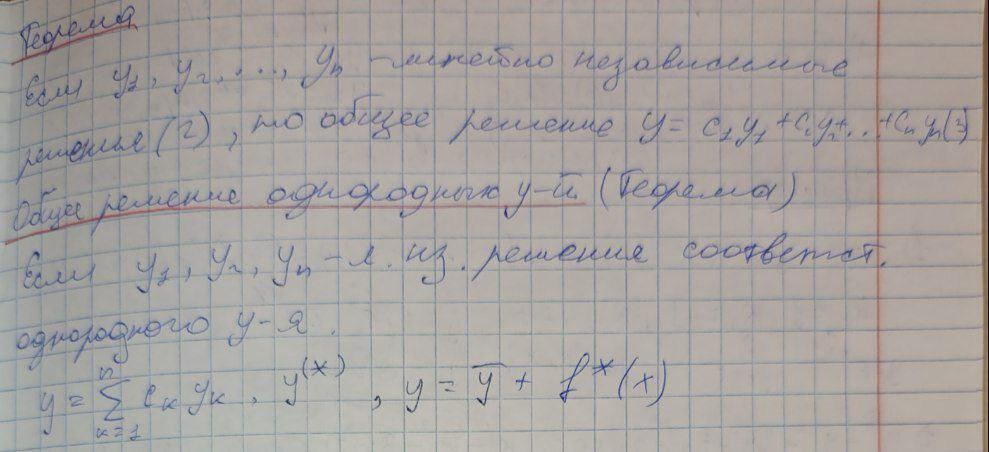 Теорема
Если y₁, y₂, ..., yₙ - линейно независимые
решения (2), то общее решение y = c₁y₁ + c₂y₂ + ... + cₙyₙ (3)
Общее решение однородных у-й (Теорема)
Если y₁, y₂, yₙ - л. нз. решения соответст.
однородного у-я.
y = ∑ₖ₌₁ⁿ cₖ yₖ, y⁽ˣ⁾, y = ȳ + f*(x)